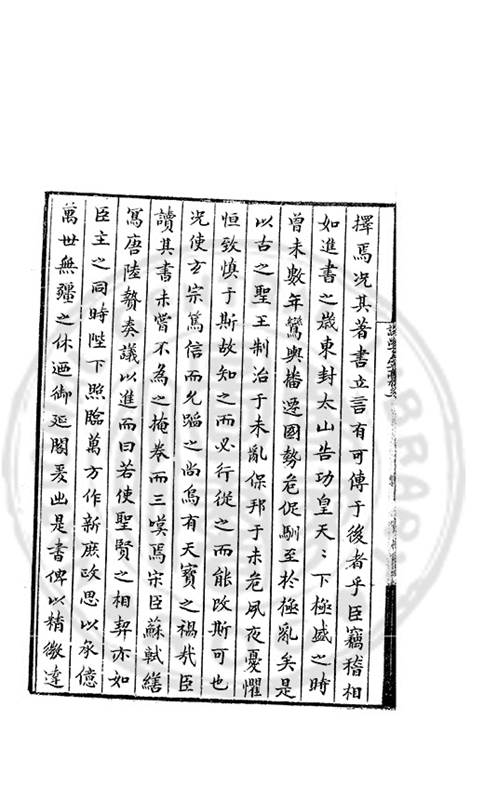 擇焉况其著書立言有可傳于後者乎臣竊稽相
如進書之歲東封太山告功皇天〻下極盛之時
曾未數年鸞輿播遷國勢危促馴至於極亂矣是
以古之聖王制治于未亂保邦于未危夙夜憂懼
恒致慎于斯故知之而必行從之而能改斯可也
况使方宗篤信而允蹈之尚烏有天寶之禍哉臣
讀其書未嘗不為之掩卷而三嘆焉宋臣蘇軾繕
寫唐陸贄奏議以進而曰若使聖賢之相契亦如
臣主之同時陛下照臨萬方作新庶政思以承億
萬世無疆之休迺御延閣爰出是書俾以精微達